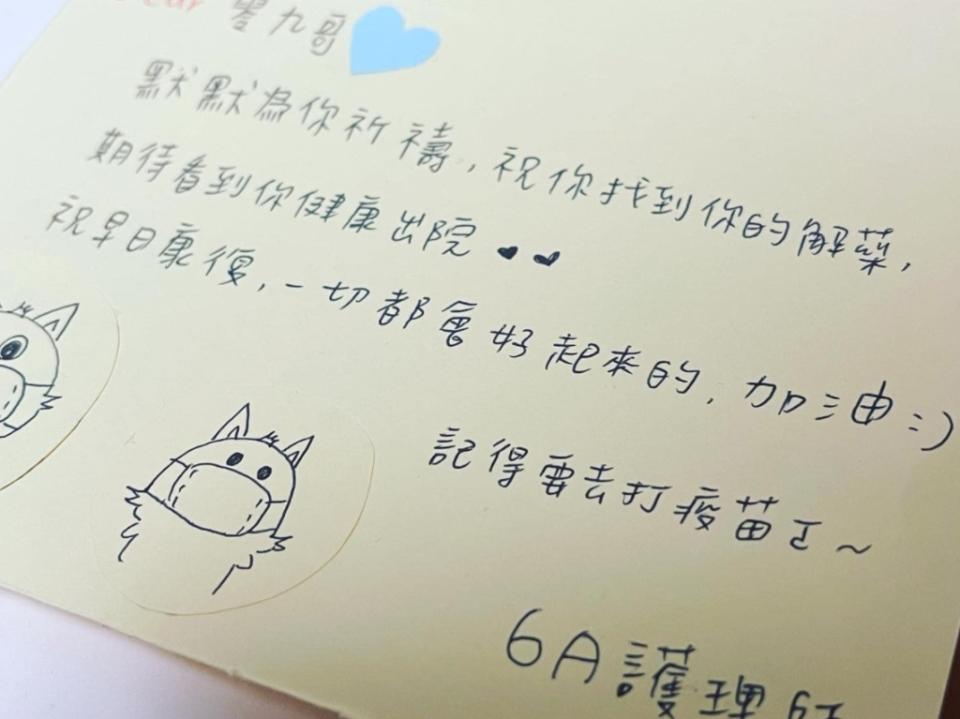 Dear 零九哥
默默為你祈禱,祝你找到你的解藥,
期待看到你健康出院♥♥
祝早日康復,一切都會好起來的,加油:)
記得要去打疫苗ㄛ~
6A護理